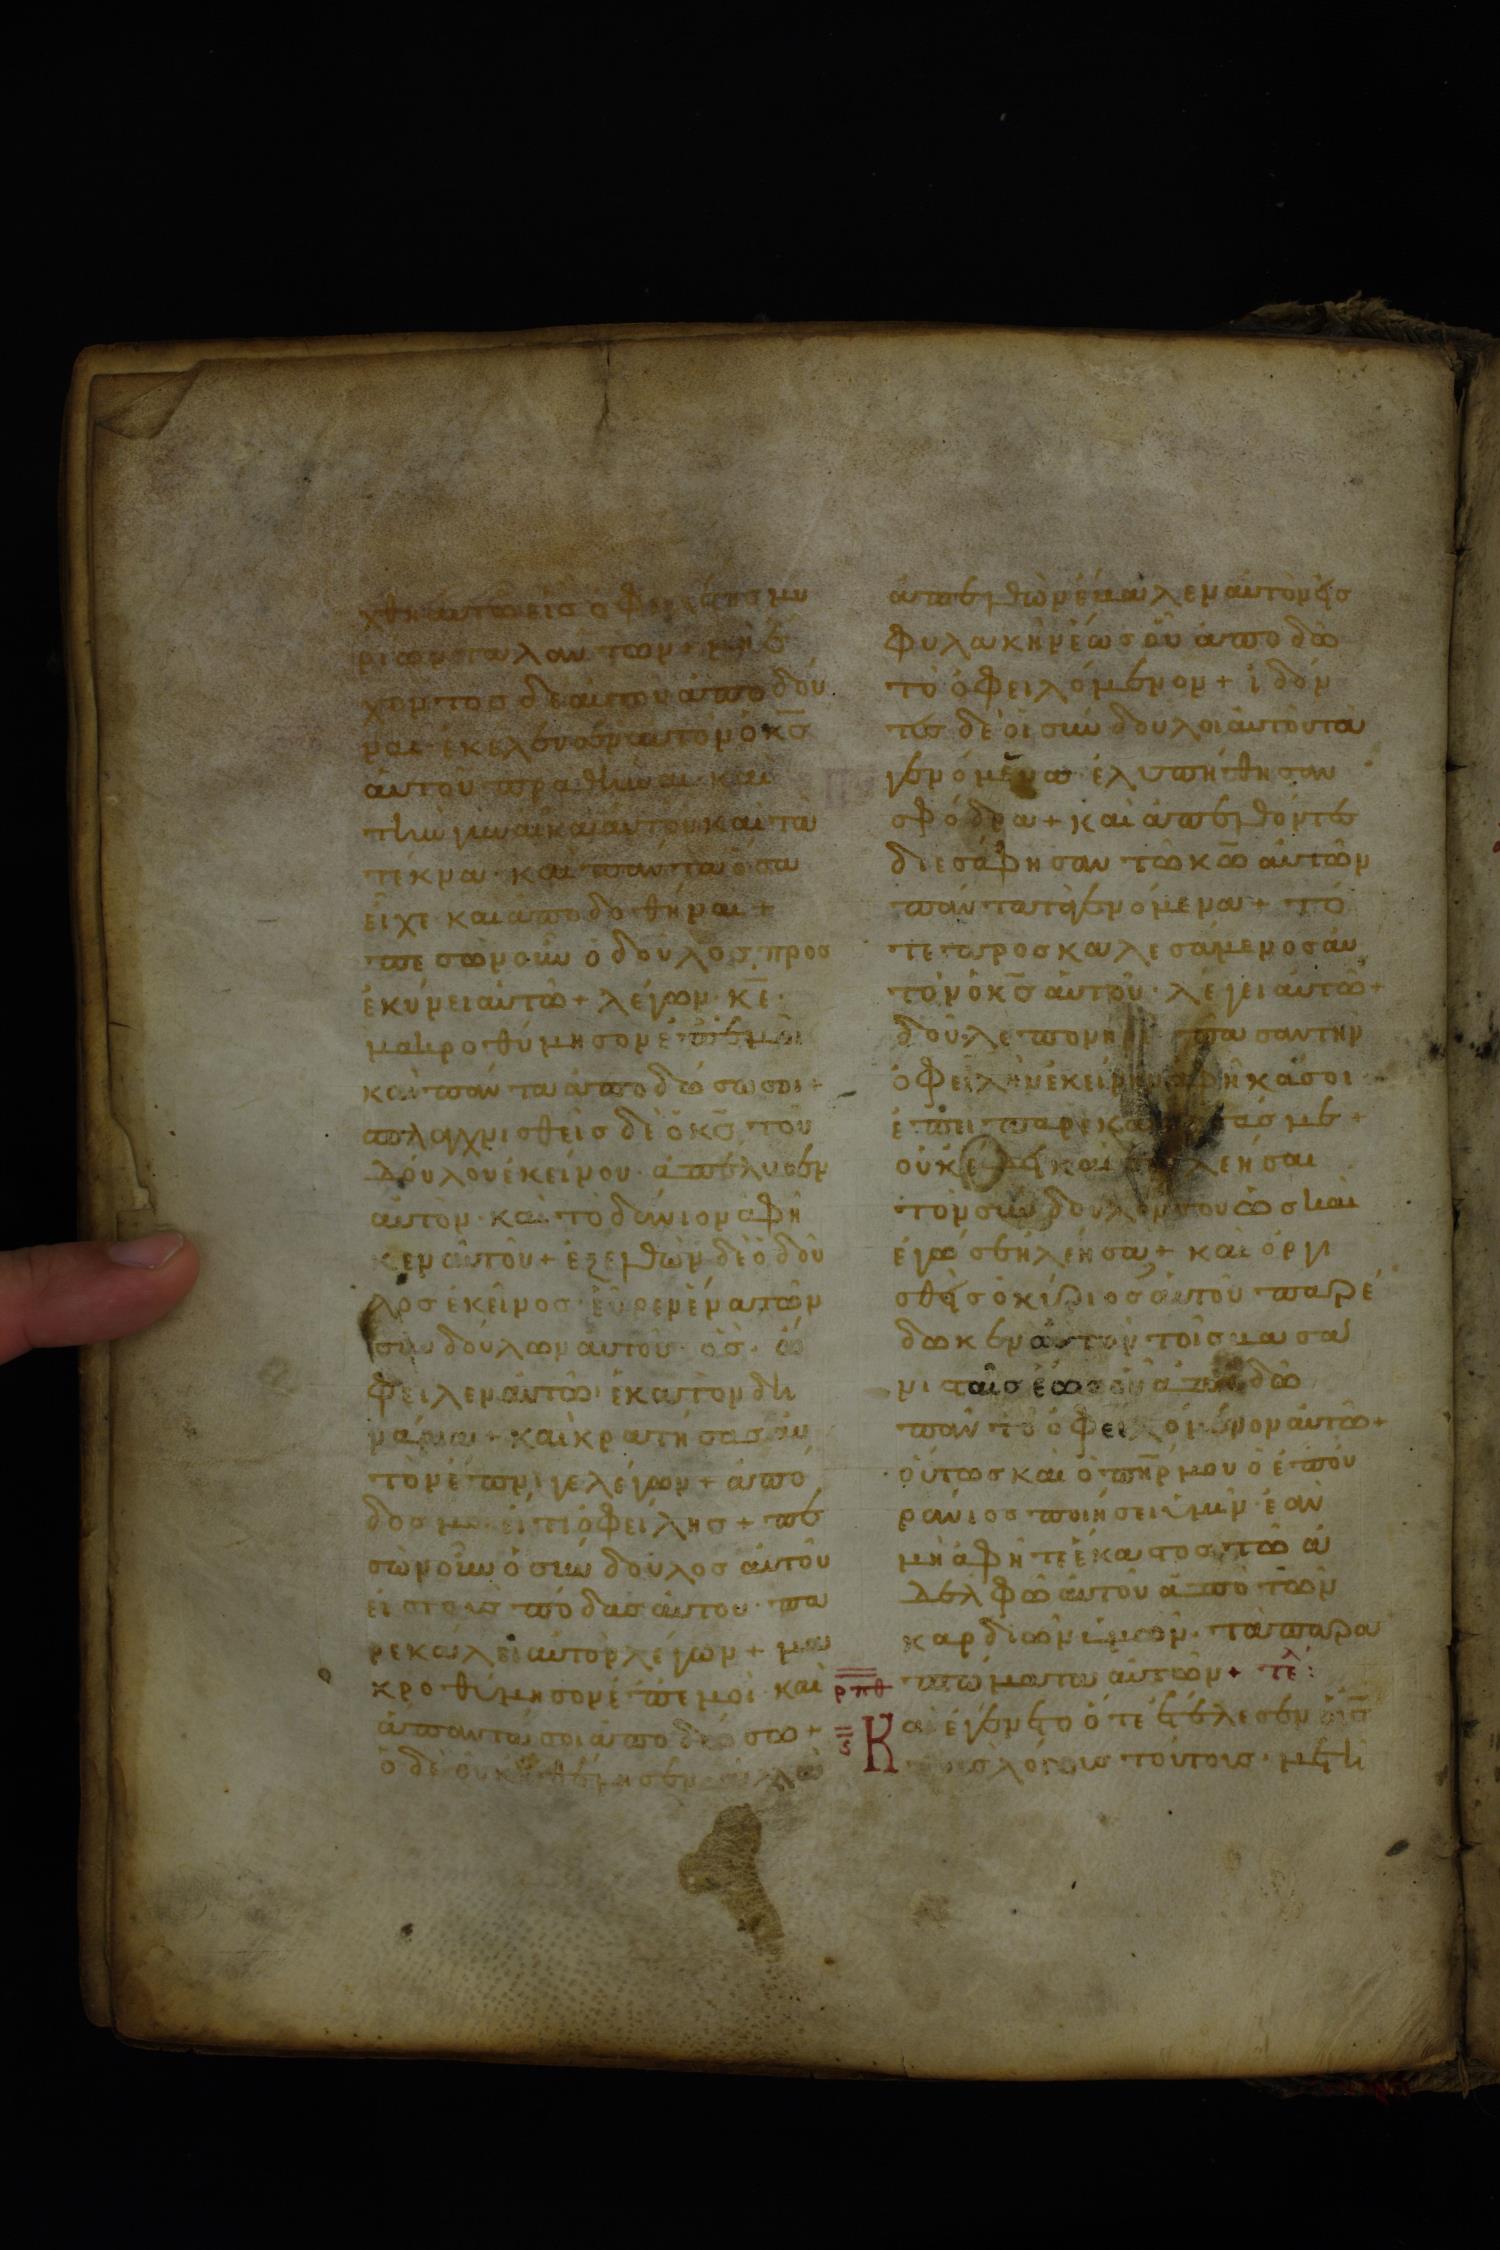 χθη αυτῶ εἷσ ὀφειλέτησ μυ
ρίων ταλάντων· μὴ ἔ
χοντοσ δὲ αυτοῦ ἀποδοῦ
ναι· ἐκέλευσεν αυτὸν ὁ κ̅σ̅
ἀυτοῦ πραθῆναι· και
τὴν γυναῖκα ἀυτοῦ καὶ τὰ
τέκνα· καὶ πάντα ὅσα
εἶχε· και ἀποδοθῆναι +
πεσὼν οὖν ὁ δοῦλοσ προσ
ἐκύνει ἀυτῶ + λέγων· κ̅ε̅·
μακροθύμησον ἐπ' ἐμοὶ
καὶ πάντα ἀποδώσω σοι +
σπλαγχνισθεὶσ δὲ ὁ κ̅σ̅ τοῦ
δούλου ἐκείνου· ἀπέλυσεν
ἀυτὸν· καὶ τὸ δάνιον ἀφῆ
κεν ἀυτοῦ + ἐξελθὼν δὲ ὁ δοῦ
λοσ ἐκεῖνοσ· ἑῦρεν ἕνα τῶν
συνδούλων ἀυτοῦ· ὃσ· ὤ
φειλεν ἀυτῶ ἑκατὸν δη
νάρια + καὶ κρατήσασ ἀυ
τὸν ἔπνιγε λέγων + ἀπό
δοσ μοι εἴ τι ὀφείλησ + πε
σὼν οὖν ὁ σύνδουλοσ ἀυτοῦ
εἰσ τοὺσ πόδασ ἀυτου· πα
ρεκάλει ἀυτὸν λέγων + μα
κροθύμησον ἐπ' ἐμοὶ· καὶ
ἅπαντά σοι ἀποδώσω +
ὁ δὲ οὐκ ἠθέλησεν ἀλλὰ
ἀπελθὼν ἔβαλεν ἀυτὸν εἰσ
φυλακὴν ἕωσ οὗ ἀποδῶ
τὸ ὀφειλόμενον + ἰδόν
τεσ δὲ ὁι σύνδουλοι ἀυτοῦ τὰ
γενόμενα· ἐλυπήθησαν
σφόδρα + καὶ ἀπελθόντεσ
διεσάφησαν τῶ κ̅ω̅ ἀυτῶν
πάντα τὰ γενόμενα + τό
τε προσκαλεσάμενοσ ἀυ
τὸν ὁ κ̅σ̅ ἀυτοῦ· λέγει ἀυτῶ +
δοῦλε πονηρὲ πᾶσαν τὴν
ὀφειλὴν ἐκείνην ἀφῆκά σοι
ἐπεὶ παρεκάλεσάσ με +
οὐκ ἔδει καὶ σὲ ἐλεῆσαι
τὸν σύνδουλόν σου ὡσ καὶ
ἐγώ σε ἠλέησα + καὶ ὀργι
σθεὶσ ὁ κύριοσ ἀυτοῦ παρέ
δωκεν ἀυτὸν τοῖσ βασα
νισταῖσ ἕωσ οὗ ἀποδῶ
πᾶν τὸ ὀφειλόμενον ἀυτῶ +
ὅυτωσ καὶ ὁ π̅η̅ρ̅ μου ὁ ἐπου
ράνιοσ ποιήσει ὑμῖν· ἐὰν
μὴ ἀφῆτε ἕκαστοσ τῶ ἀ
δελφῶ ἀυτοῦ ἀπὸ τῶν
καρδιῶν ὑμῶν· τὰ παρα
ρπθ πτώματα ἀυτῶν + τέλ:
ς Καὶ ἐγένετο ὅτε ἐτέλεσεν ὁ ι̅σ̅
τοὺσ λόγουσ τούτουσ· μετῆ